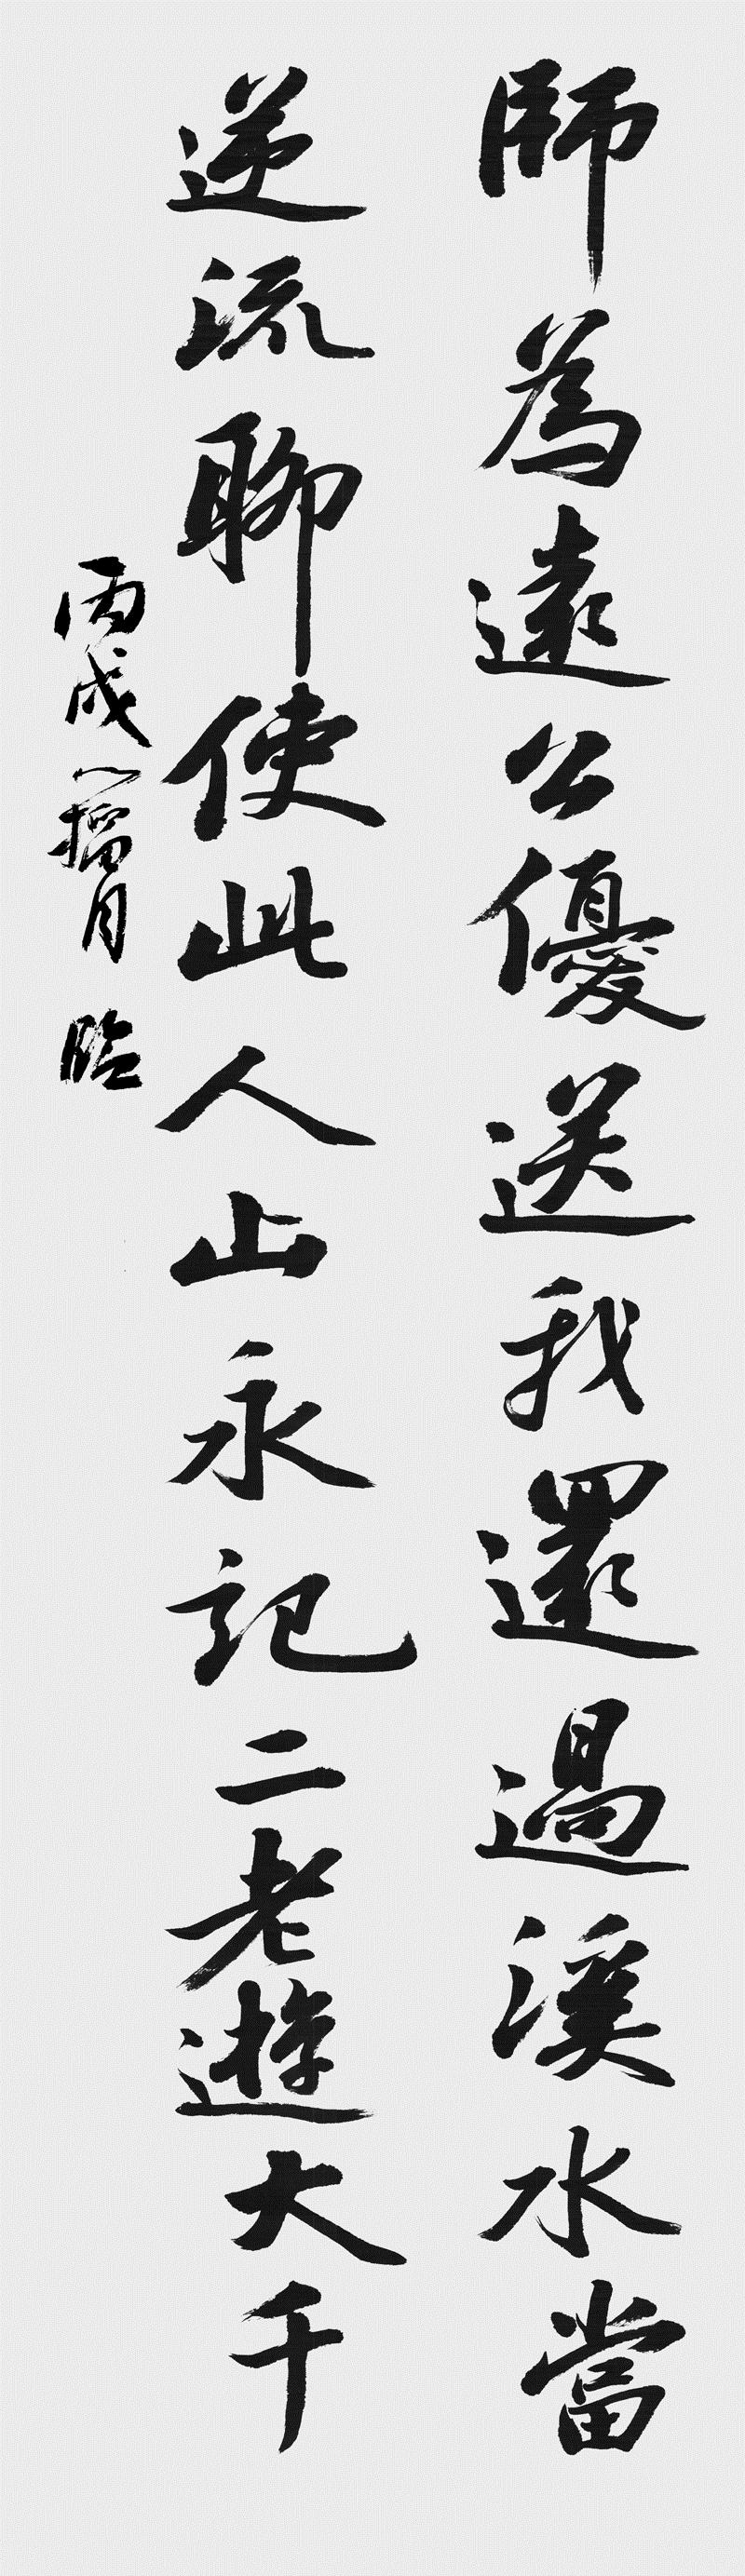 師為遠公優送我還過溪水當
逆流聊使此人山永記二老遊大千
丙戌八月臨